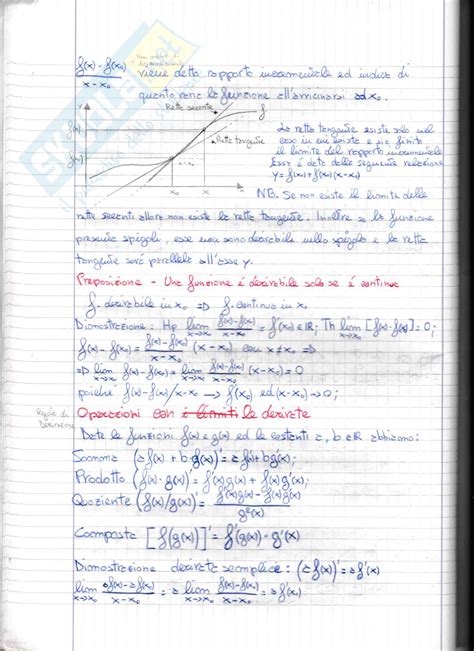 f(x) - f(x₀) / x - x₀ viene detto rapporto incrementale ed indica di
quanto varia la funzione all'avvicinarsi ad x₀.
Retta secante
f
Retta tangente
f(x)
f(x₀)
x₀ x
La retta tangente esiste solo nel
caso in cui esiste e sia finito
il limite del rapporto incrementale
Essa è data dalla seguente relazione
NB. Se non esiste il limite delle
rette secanti allora non esiste la retta tangente. Inoltre se la funzione
presenta spigoli, essa non sarà derivabile nello spigolo e la retta
tangente sarà parallela all'asse y.
Proposizione - Una funzione è derivabile solo se è continua
f. derivabile in x₀ => f. continua in x₀
Dimostrazione: Hp lim x→x₀ f(x)-f(x₀) / x-x₀ = f'(x₀) ∈ ℝ; Th lim x→x₀ [f(x)-f(x₀)] = 0;
f(x)-f(x₀) = f(x)-f(x₀) / x-x₀ (x-x₀) con x≠x₀ =>
=> lim x→x₀ f(x)-f(x₀) = lim x→x₀ f(x)-f(x₀) / x-x₀ (x-x₀) = 0
poiché f(x)-f(x₀)/x-x₀ → f'(x₀) ed (x-x₀) → 0;
Regole di
Derivazione
Operazioni con i limiti le derivate
Date le funzioni f(x) e g(x) ed le costanti a, b ∈ ℝ abbiamo:
Somma (a f(x) + b g(x))' = a f'(x) + b g'(x);
Prodotto (f(x) · g(x))' = f'(x) g(x) + f(x) g'(x);
Quoziente (f(x)/g(x))' = f'(x)g(x) - f(x)g'(x) / g²(x)
Composta [f(g(x))]' = f'(g(x)) · g'(x)
Dimostrazione derivate semplice: (a f(x))' = a f'(x)
lim x→x₀ a f(x) - a f(x₀) / x-x₀ = a lim x→x₀ f(x)-f(x₀) / x-x₀ = a f'(x)